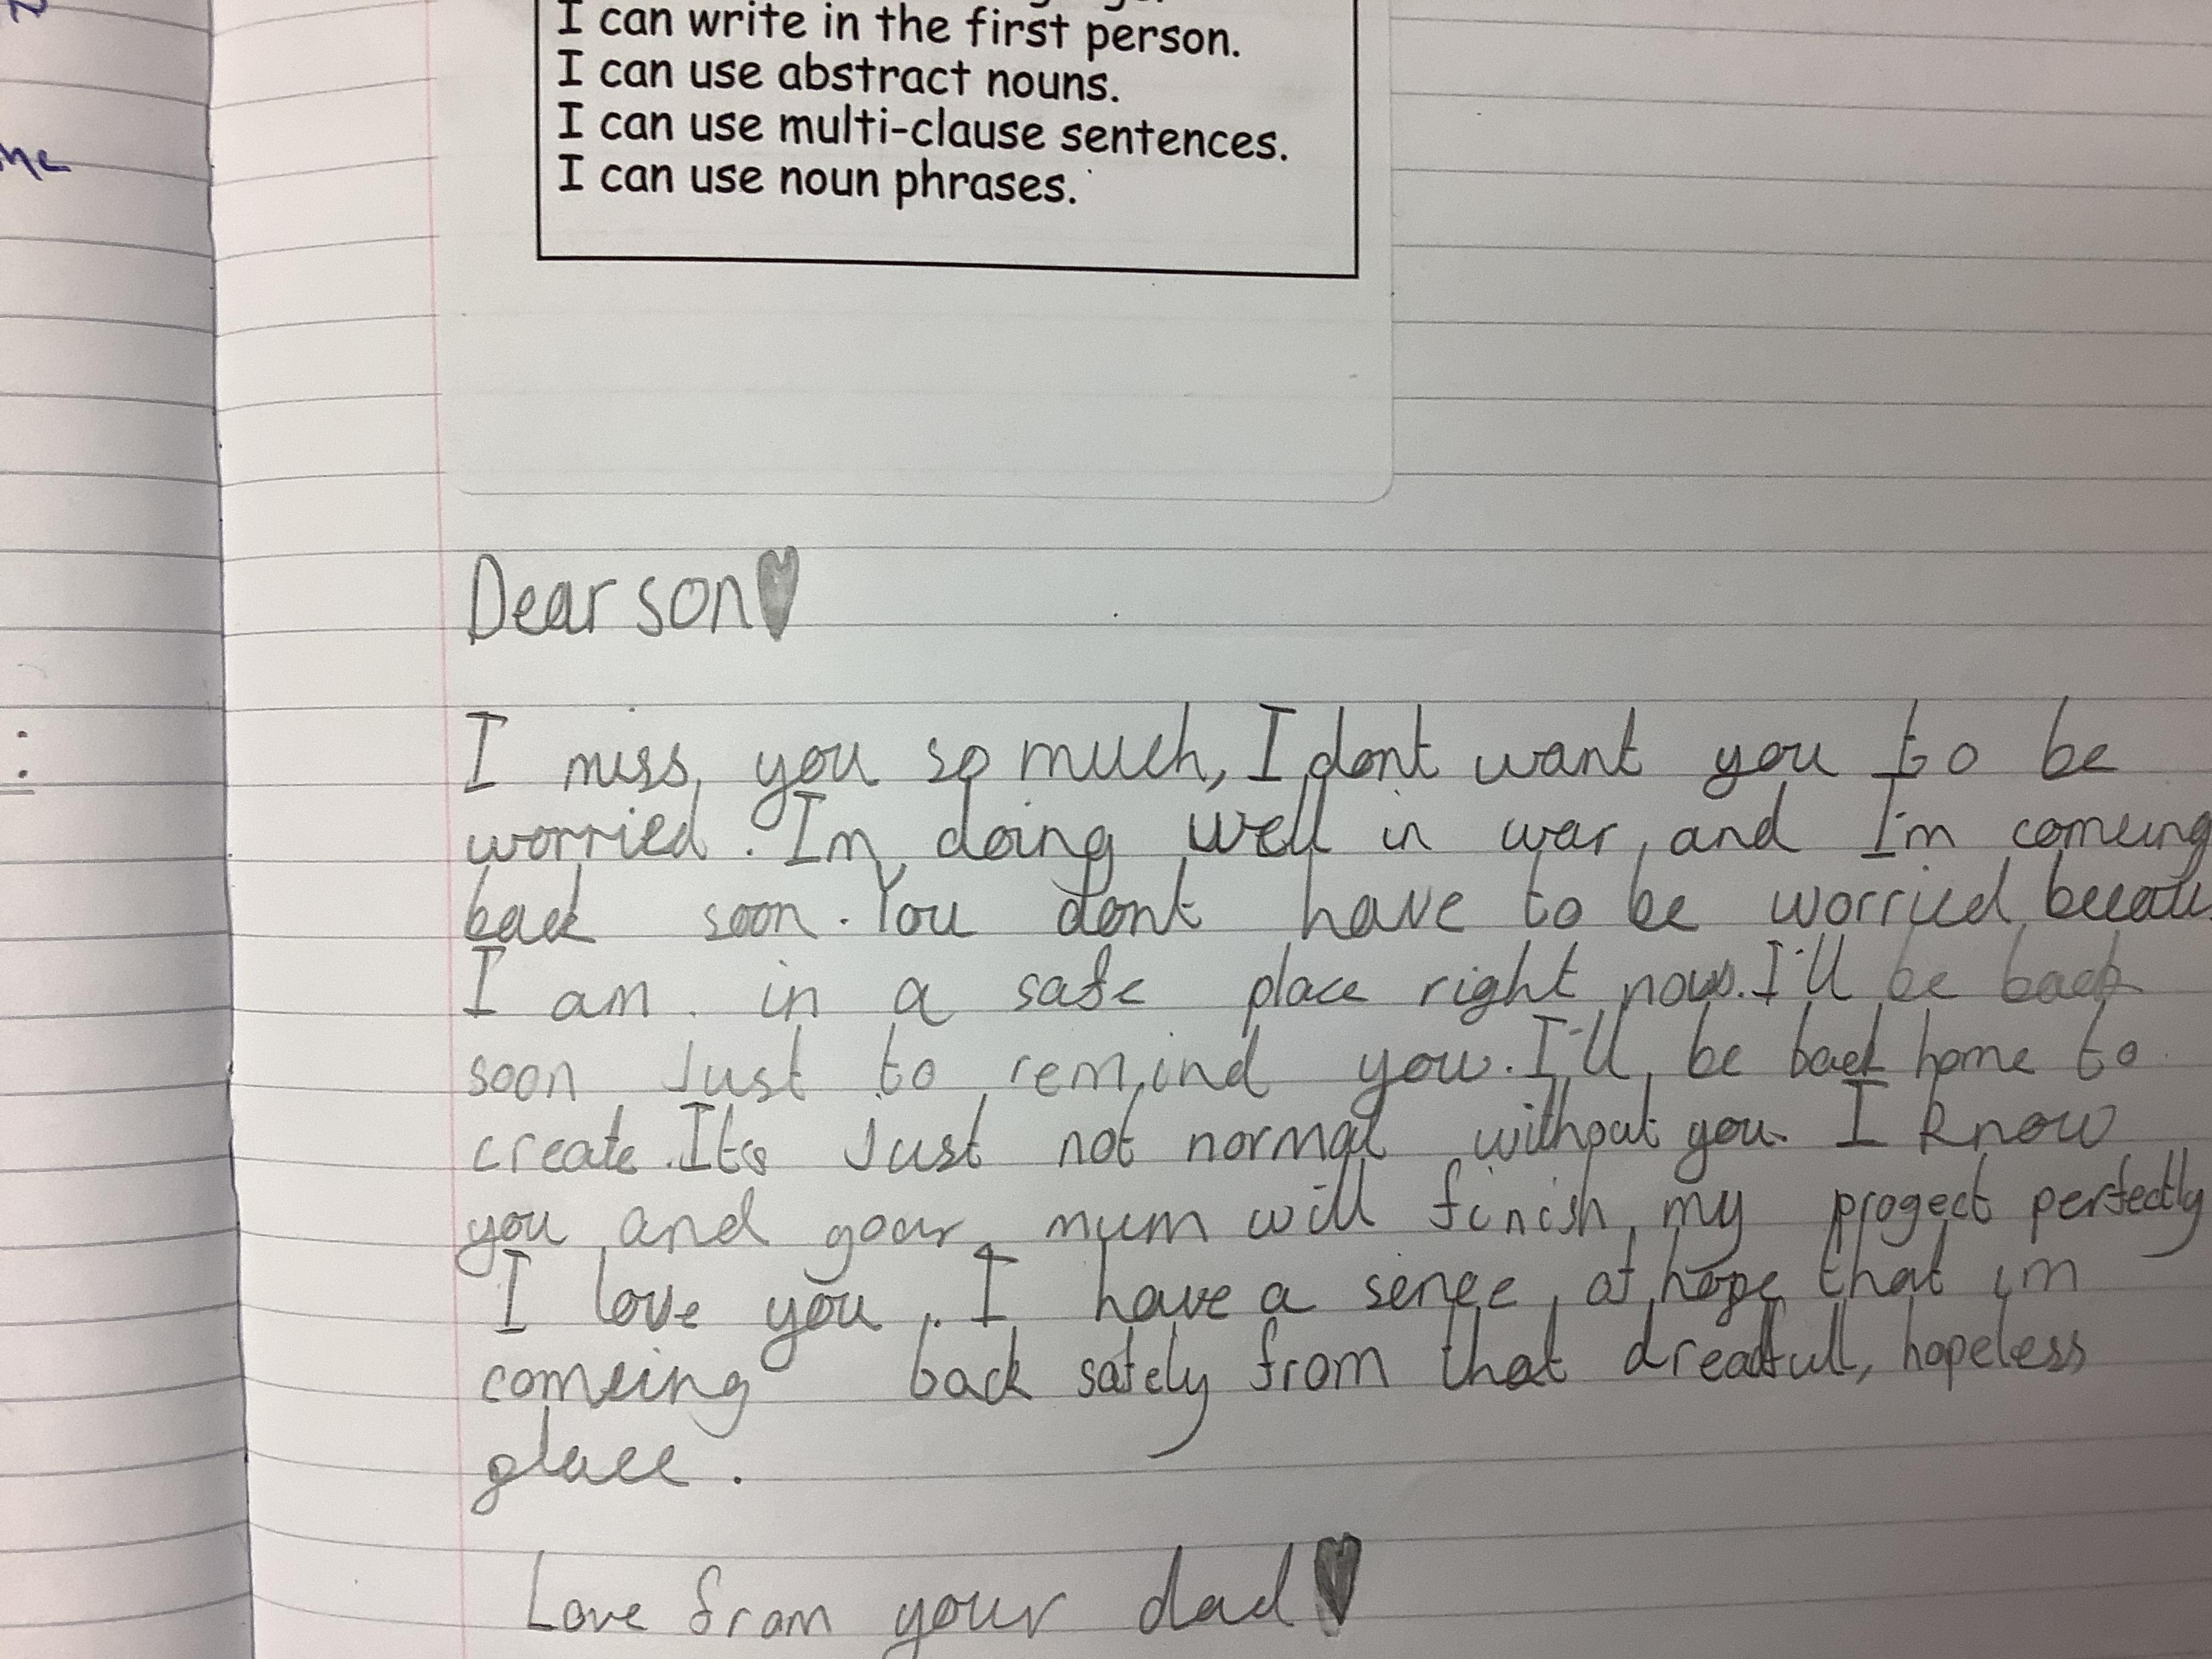 I can write in the first person.
I can use abstract nouns.
I can use multi-clause sentences.
I can use noun phrases.
me
:
Dear son♥
I miss you so much, I dont want you to be
worried. Im doing well in war, and I'm comeing
back soon. You dont have to be worried becau
I am in a safe place right now. I'll be back
soon Just to remind you. I'll be back home to
create. Its Just not normal without you. I know
you and your mum will finish my progect perfectly
I love you. I have a sense of hope that im
comeing back safely from that dreadfull, hopeless
place.
Love from your dad♥